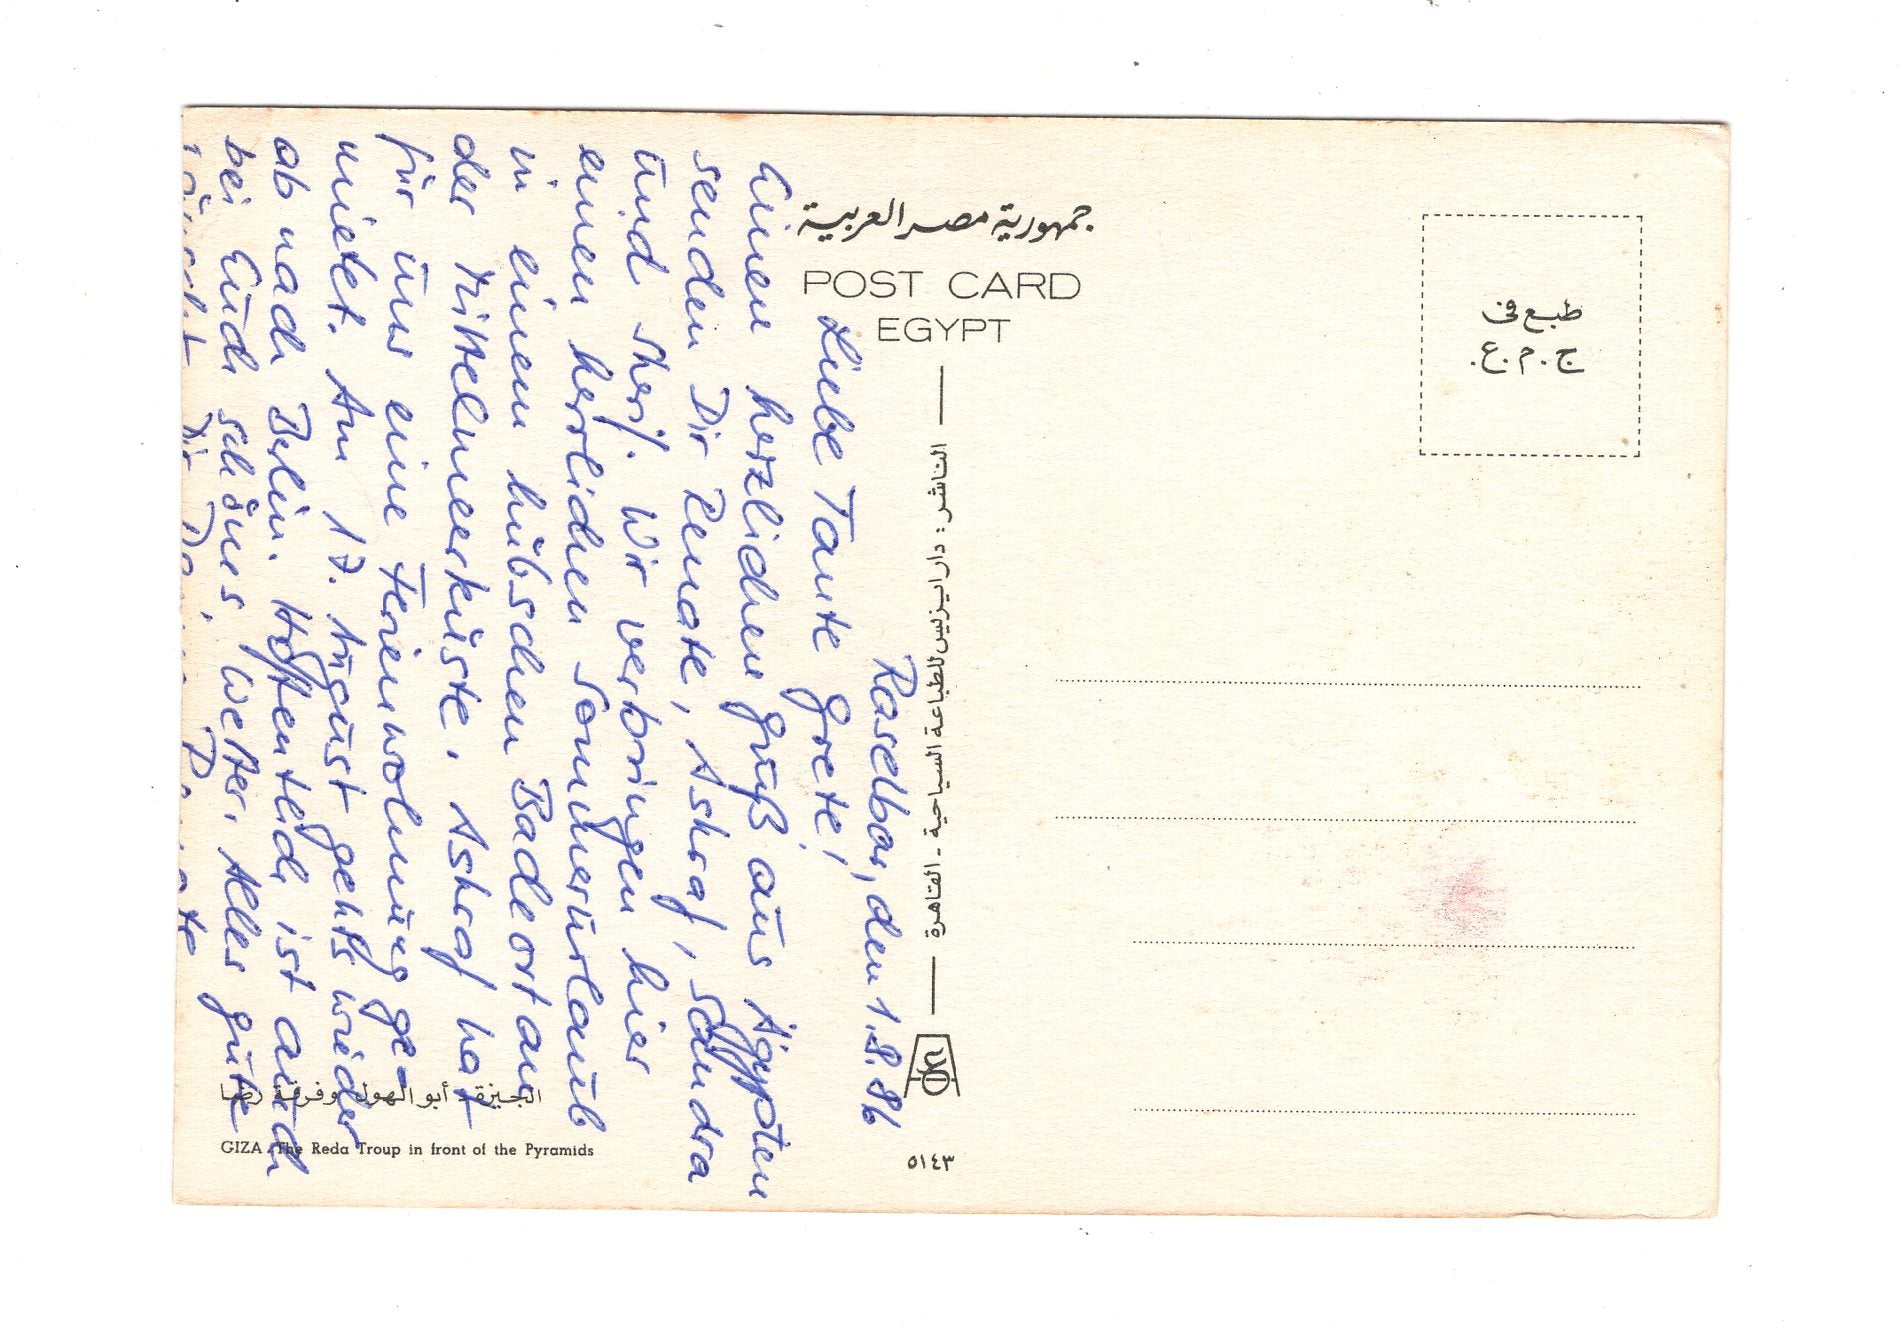 جمهورية مصر العربية
POST CARD
EGYPT
طبع في
ج.م.ع.
الناشر : دار ايزيس للطباعة السياحية - القاهرة
٥١٤٣
Raselbar, den 1.8.86
Liebe Tante Grete!
Einen herzlichen Gruß aus Ägypten
senden Dir Renate, Ashraf, Sandra
und Sherif. Wir verbringen hier
einen herrlichen Sommerurlaub
in einem hübschen Badeort an
der Mittelmeerküste. Ashraf hat
für uns eine Ferienwohnung ge-
mietet. Am 17. August geht's wieder
ab nach Berlin. Hoffentlich ist auch
bei Euch schönes Wetter. Alles gute
wünscht Dir Deine Renate
الجيزة - أبو الهول وفرقة رضا
GIZA - The Reda Troup in front of the Pyramids